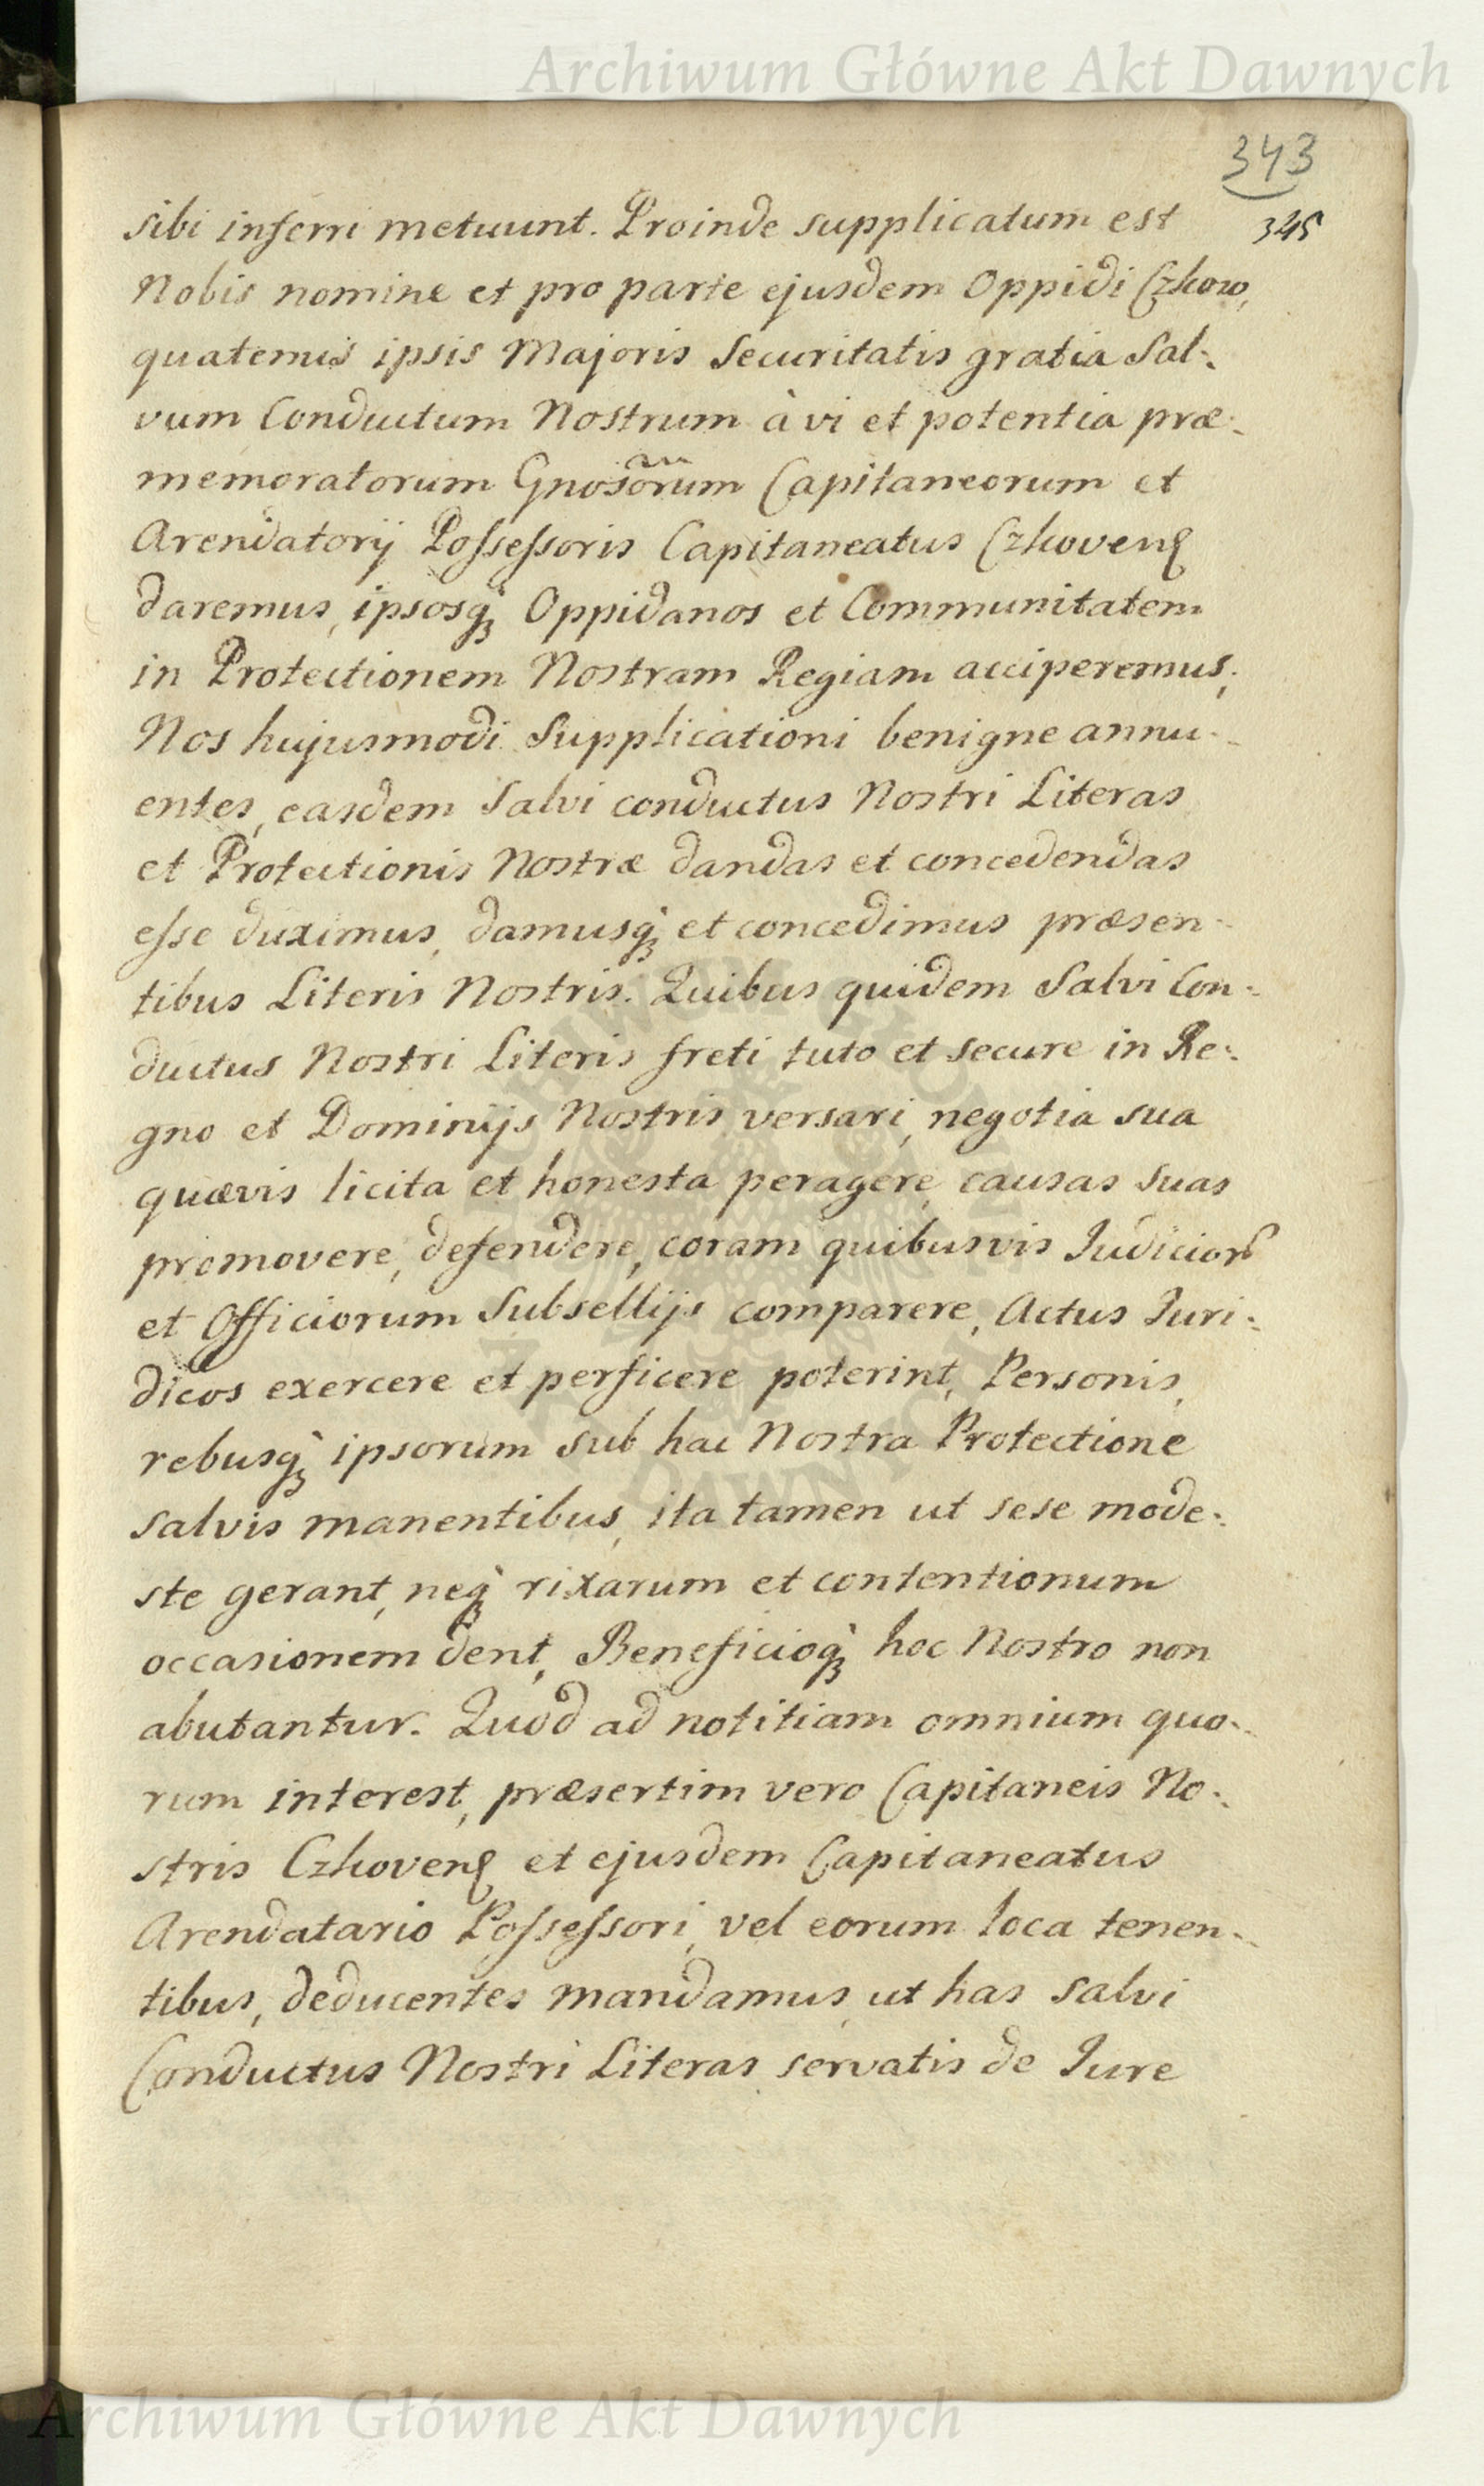 Archiwum Główne Akt Dawnych
343
345
sibi inferri metuunt. Proinde supplicatum est
Nobis nomine et pro parte ejusdem Oppidi Czhow,
quatenus ipsis Majoris Securitatis gratia Sal-
vum Conductum Nostrum à vi et potentia præ-
memoratorum Gnosorum Capitaneorum et
Arendatorij Possessoris Capitaneatus Czhoven
daremus, ipsosq Oppidanos et Communitatem
in Protectionem Nostram Regiam acciperemus;
Nos hujusmodi Supplicationi benigne annu-
entes, easdem Salvi conductus Nostri Literas
et Protectionis Nostræ dandas et concedendas
esse duximus, damusq et concedimus præsen-
tibus Literis Nostris. Quibus quidem Salvi Con-
ductus Nostri Literis freti tuto et secure in Re-
gno et Dominijs Nostris versari, negotia sua
quævis licita et honesta peragere, causas suas
promovere, defendere, coram quibusvis Judicior
et Officiorum Subsellijs comparere, Actus Juri-
dicos exercere et perficere poterint, Personis,
rebusq ipsorum sub hac Nostra Protectione
salvis manentibus, ita tamen ut sese mode-
ste gerant, neq rixarum et contentionum
occasionem dent, Beneficioq hoc Nostro non
abutantur. Quod ad notitiam omnium quo-
rum interest, præsertim vero Capitaneis No-
stris Czhoven et ejusdem Capitaneatus
Arendatario Possessori, vel eorum loca tenen-
tibus, deducentes mandamus, ut has Salvi
Conductus Nostri Literas servatis de Jure
Archiwum Główne Akt Dawnych